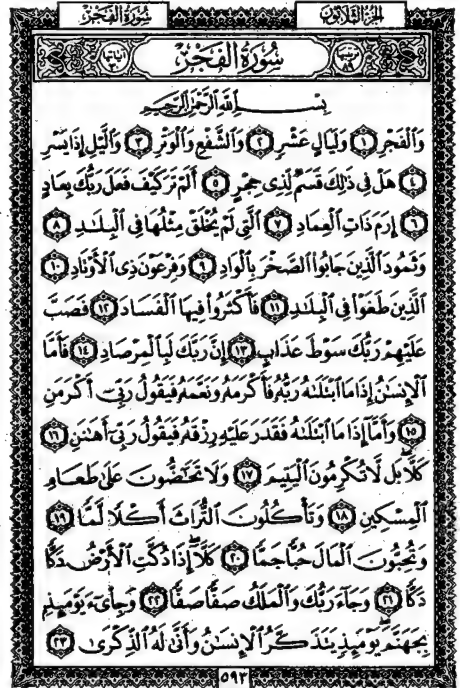 سُورَةُ الفَجْرِ
الجزء الثلاثون
سُورَةُ الْفَجْرِ
بِسْمِ اللَّهِ الرَّحْمَٰنِ الرَّحِيمِ
وَالْفَجْرِ ١ وَلَيَالٍ عَشْرٍ ٢ وَالشَّفْعِ وَالْوَتْرِ ٣ وَالَّيْلِ إِذَا يَسْرِ
٤ هَلْ فِي ذَٰلِكَ قَسَمٌ لِّذِي حِجْرٍ ٥ أَلَمْ تَرَ كَيْفَ فَعَلَ رَبُّكَ بِعَادٍ
٦ إِرَمَ ذَاتِ الْعِمَادِ ٧ الَّتِي لَمْ يُخْلَقْ مِثْلُهَا فِي الْبِلَٰدِ ٨
وَثَمُودَ الَّذِينَ جَابُوا الصَّخْرَ بِالْوَادِ ٩ وَفِرْعَوْنَ ذِي الْأَوْتَادِ ١٠
الَّذِينَ طَغَوْا فِي الْبِلَٰدِ ١١ فَأَكْثَرُوا فِيهَا الْفَسَادَ ١٢ فَصَبَّ
عَلَيْهِمْ رَبُّكَ سَوْطَ عَذَابٍ ١٣ إِنَّ رَبَّكَ لَبِالْمِرْصَادِ ١٤ فَأَمَّا
الْإِنسَٰنُ إِذَا مَا ابْتَلَىٰهُ رَبُّهُ فَأَكْرَمَهُ وَنَعَّمَهُ فَيَقُولُ رَبِّي أَكْرَمَنِ
١٥ وَأَمَّا إِذَا مَا ابْتَلَىٰهُ فَقَدَرَ عَلَيْهِ رِزْقَهُ فَيَقُولُ رَبِّي أَهَٰنَنِ ١٦
كَلَّا بَل لَّا تُكْرِمُونَ الْيَتِيمَ ١٧ وَلَا تَحَٰضُّونَ عَلَىٰ طَعَامِ
الْمِسْكِينِ ١٨ وَتَأْكُلُونَ التُّرَاثَ أَكْلًا لَّمًّا ١٩
وَتُحِبُّونَ الْمَالَ حُبًّا جَمًّا ٢٠ كَلَّا إِذَا دُكَّتِ الْأَرْضُ دَكًّا
دَكًّا ٢١ وَجَاءَ رَبُّكَ وَالْمَلَكُ صَفًّا صَفًّا ٢٢ وَجِا۟يءَ يَوْمَئِذٍ
بِجَهَنَّمَ يَوْمَئِذٍ يَتَذَكَّرُ الْإِنسَٰنُ وَأَنَّىٰ لَهُ الذِّكْرَىٰ ٢٣
٥٩٣